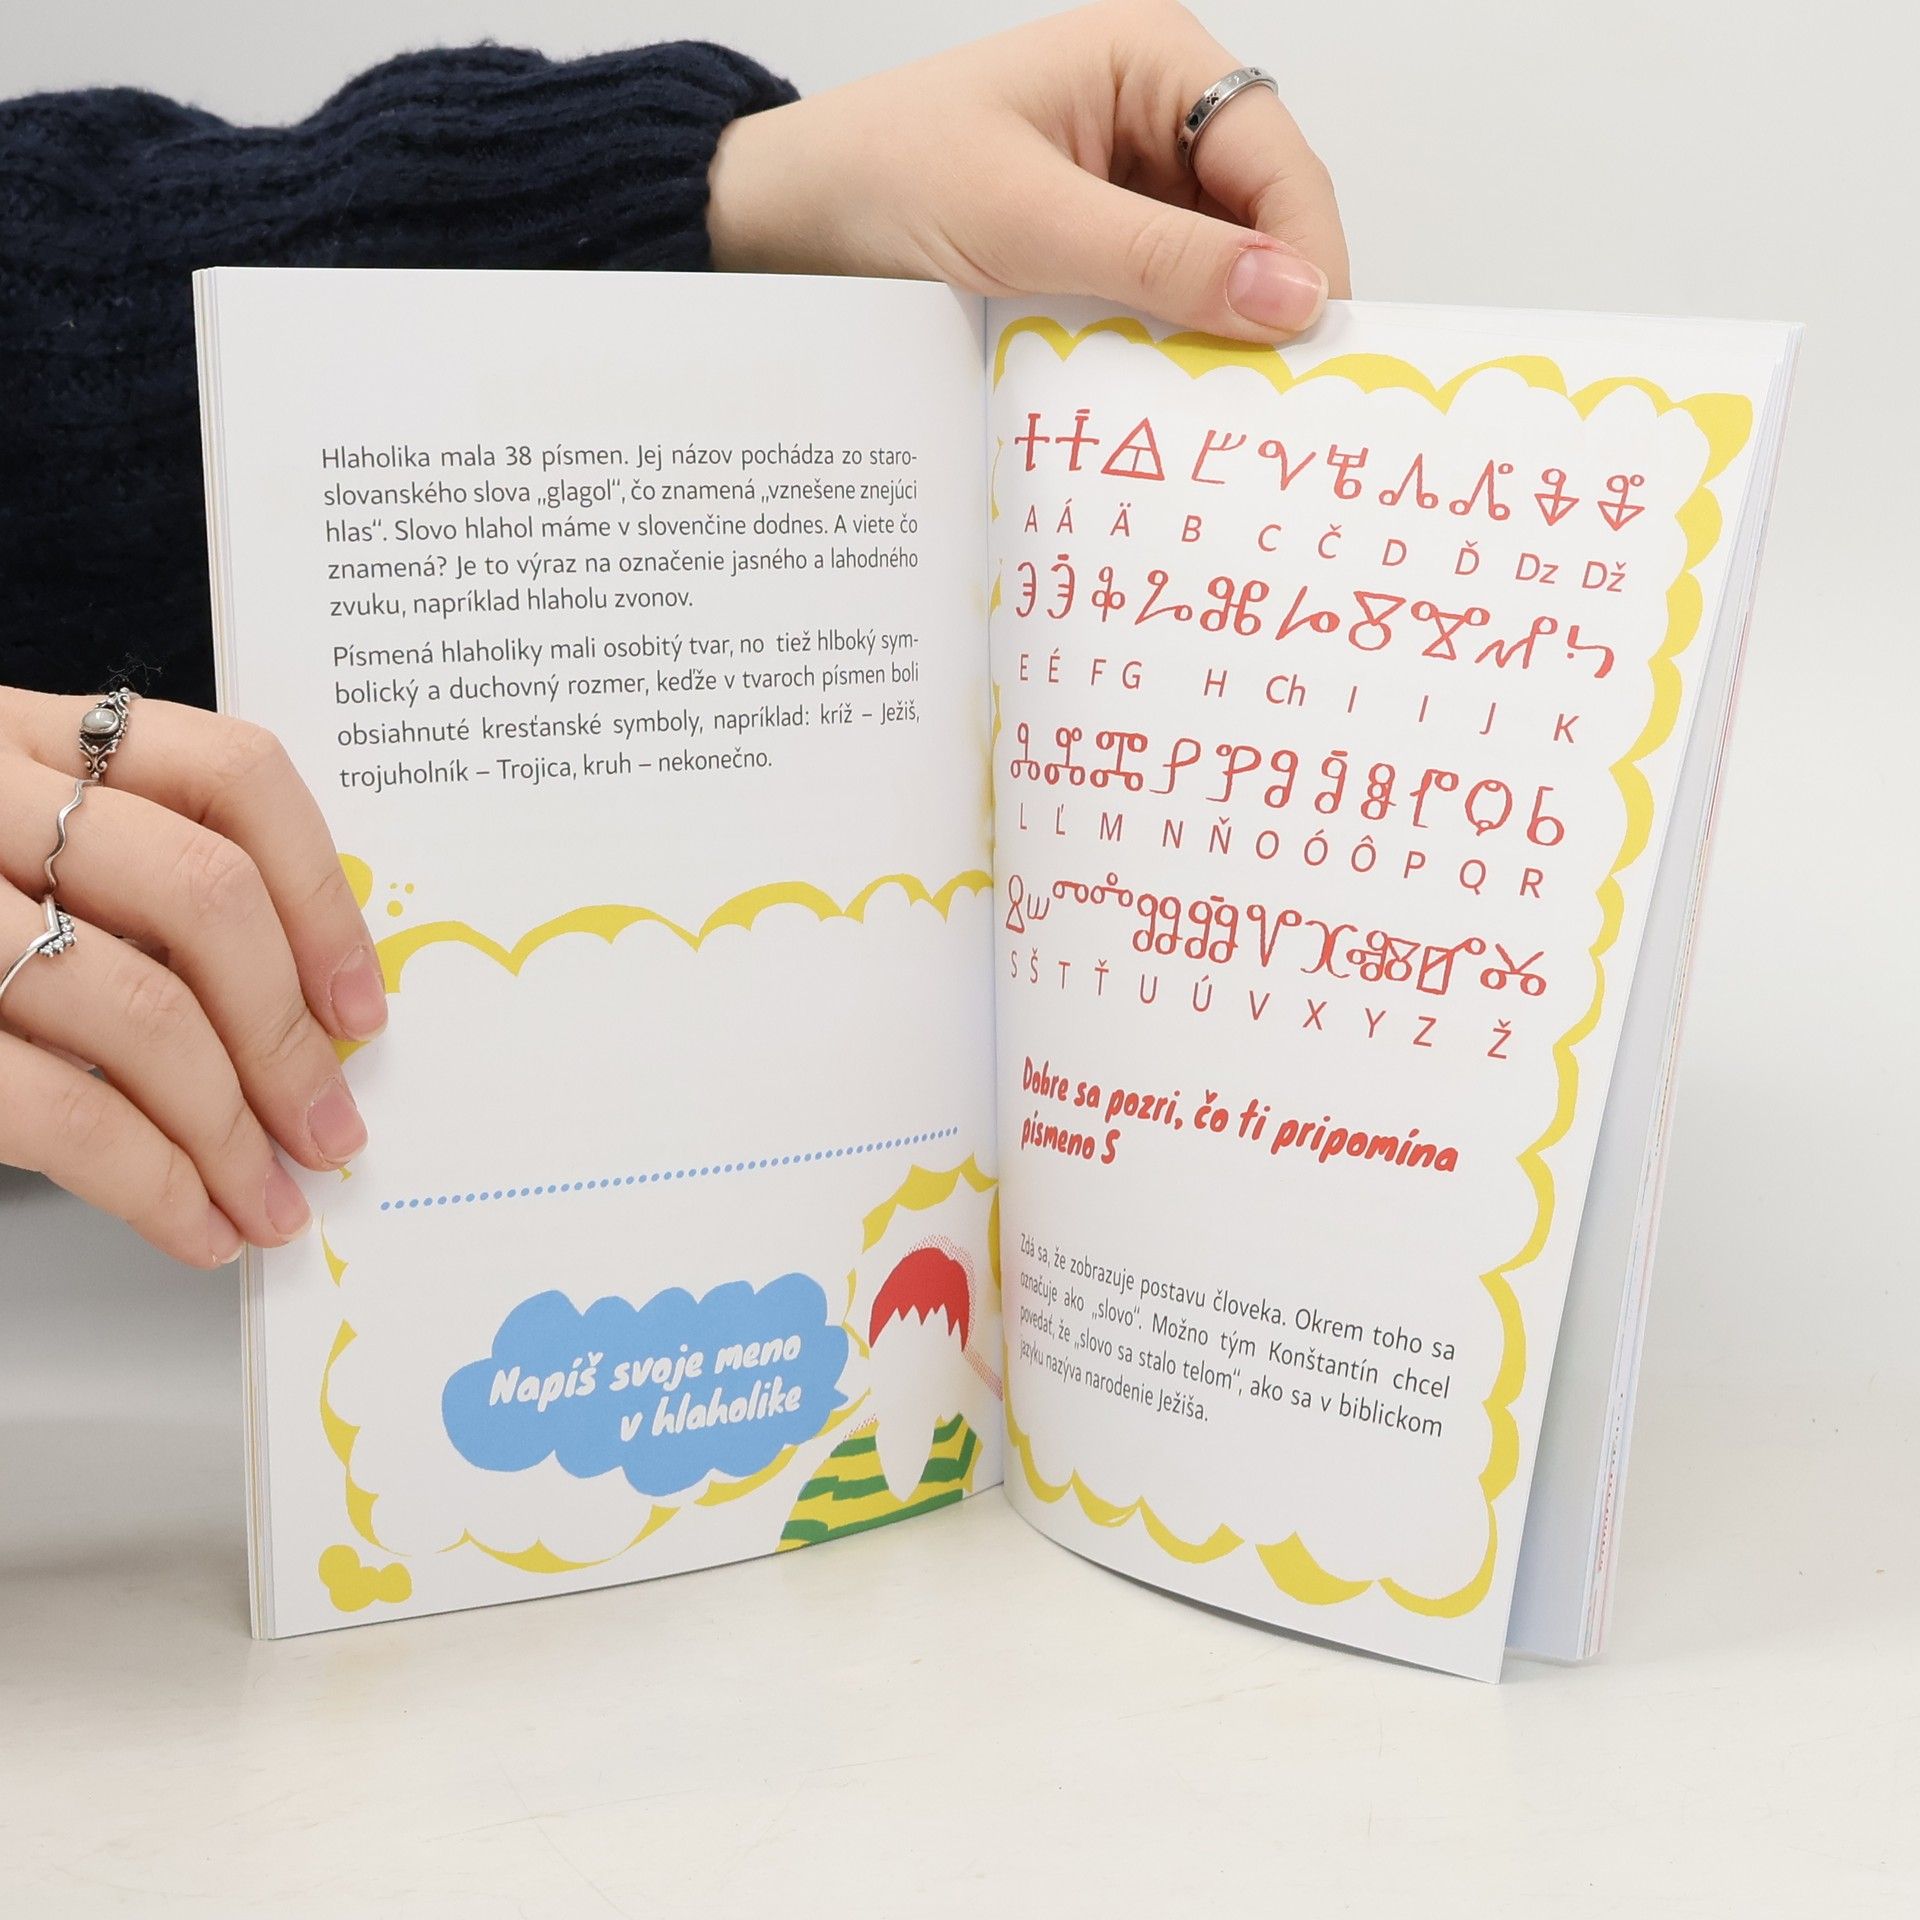 Hlaholika mala 38 písmen. Jej názov pochádza zo staro-
slovanského slova „glagol“, čo znamená „vznešene znejúci
hlas“. Slovo hlahol máme v slovenčine dodnes. A viete čo
znamená? Je to výraz na označenie jasného a lahodného
zvuku, napríklad hlaholu zvonov.
Písmená hlaholiky mali osobitý tvar, no tiež hlboký sym-
bolický a duchovný rozmer, keďže v tvaroch písmen boli
obsiahnuté kresťanské symboly, napríklad: kríž – Ježiš,
trojuholník – Trojica, kruh – nekonečno.
Napíš svoje meno
v hlaholike
A Á Ä B C Č D Ď Dz Dž
E É F G H Ch I I J K
L Ľ M N Ň O Ó Ô P Q R
S Š T Ť U Ú V X Y Z Ž
Dobre sa pozri, čo ti pripomína
písmeno S
Zdá sa, že zobrazuje postavu človeka. Okrem toho sa
označuje ako „slovo“. Možno tým Konštantín chcel
povedať, že „slovo sa stalo telom“, ako sa v biblickom
jazyku nazýva narodenie Ježiša.